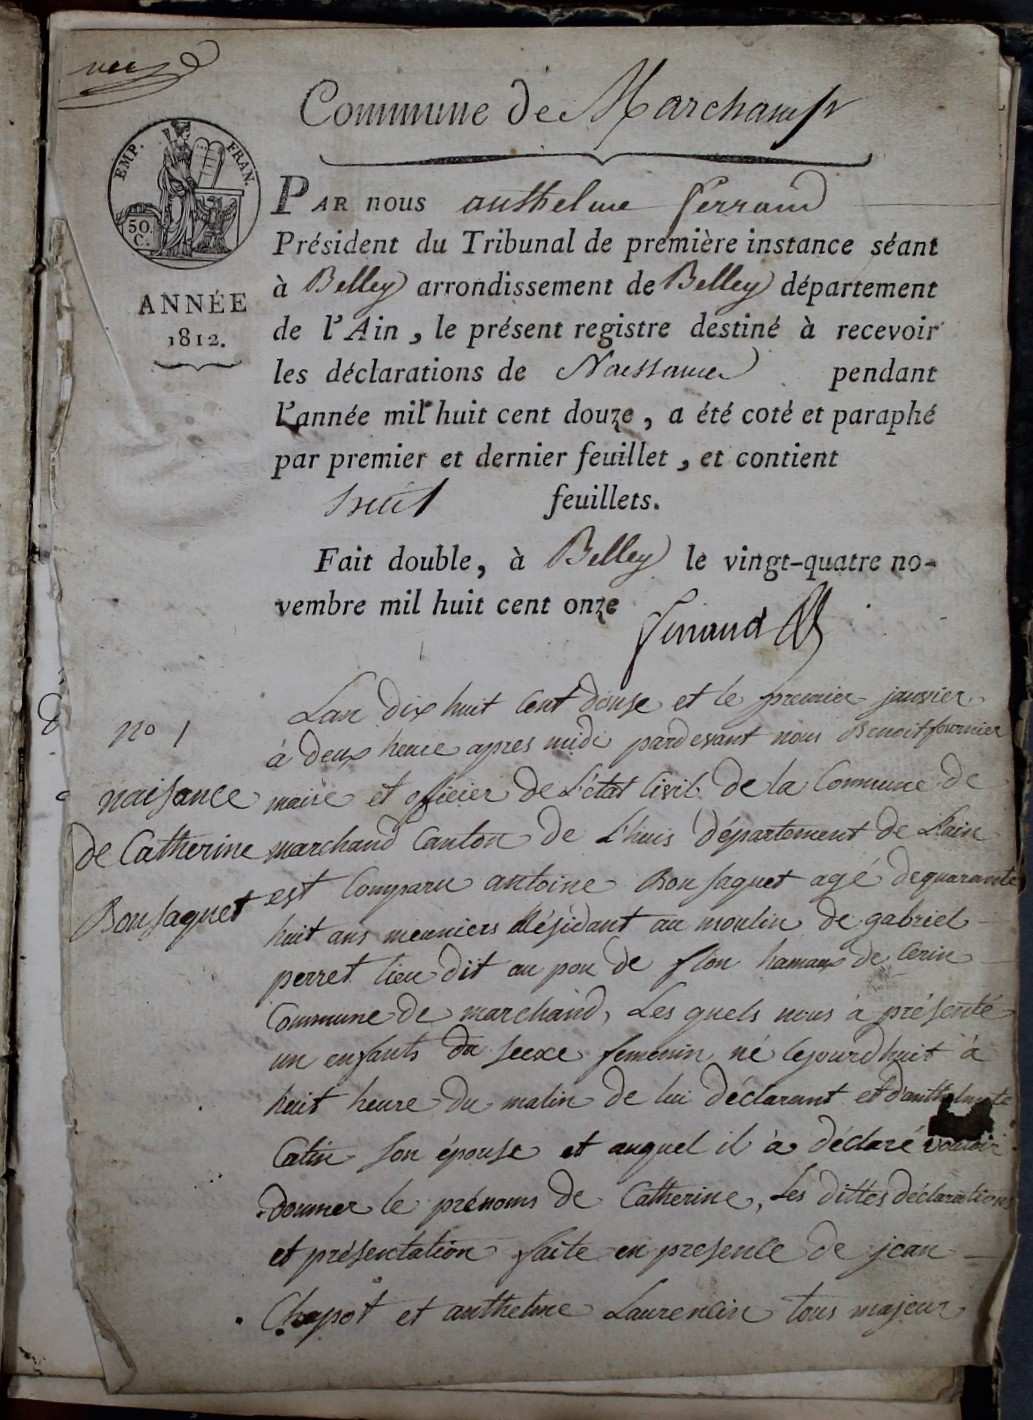 Commune de Marchamp
EMP. FRAN.
50. C.
ANNÉE
1812.
PAR nous anthelme ferrand
Président du Tribunal de première instance séant
à Belley arrondissement de Belley département
de l'Ain, le présent registre destiné à recevoir
les déclarations de Naissance pendant
l'année mil huit cent douze, a été coté et paraphé
par premier et dernier feuillet, et contient
huit feuillets.
Fait double, à Belley le vingt-quatre no-
vembre mil huit cent onze
ferrand
no 1
naisance
de Catherine
Bonsaquet
Lan dix huit Cent douse et le premier janvier
à deux heure apres midi pardevant nous Benoit fournier
maire et officier de L'état Civil de la Commune de
marchand Canton de L'huis département de Lain
est Comparu antoine Bonsaquet agé dequarante
huit ans meuniers Résidant au moulin de gabriel
perret lieu dit au pon de flon hamaux de Cerin
Commune de marchand, Les quels nous à présenté
un enfants du seexe femenin né lejourdhuit à
huit heure du matin de lui déclarant et d'anthelmte
Catin son épouse et auquel il à déclaré vouloir
donner le prénoms de Catherine, Les dittes déclarations
et présentation faite en presence de jean
Chapot et anthelme Laurencin tous majeur